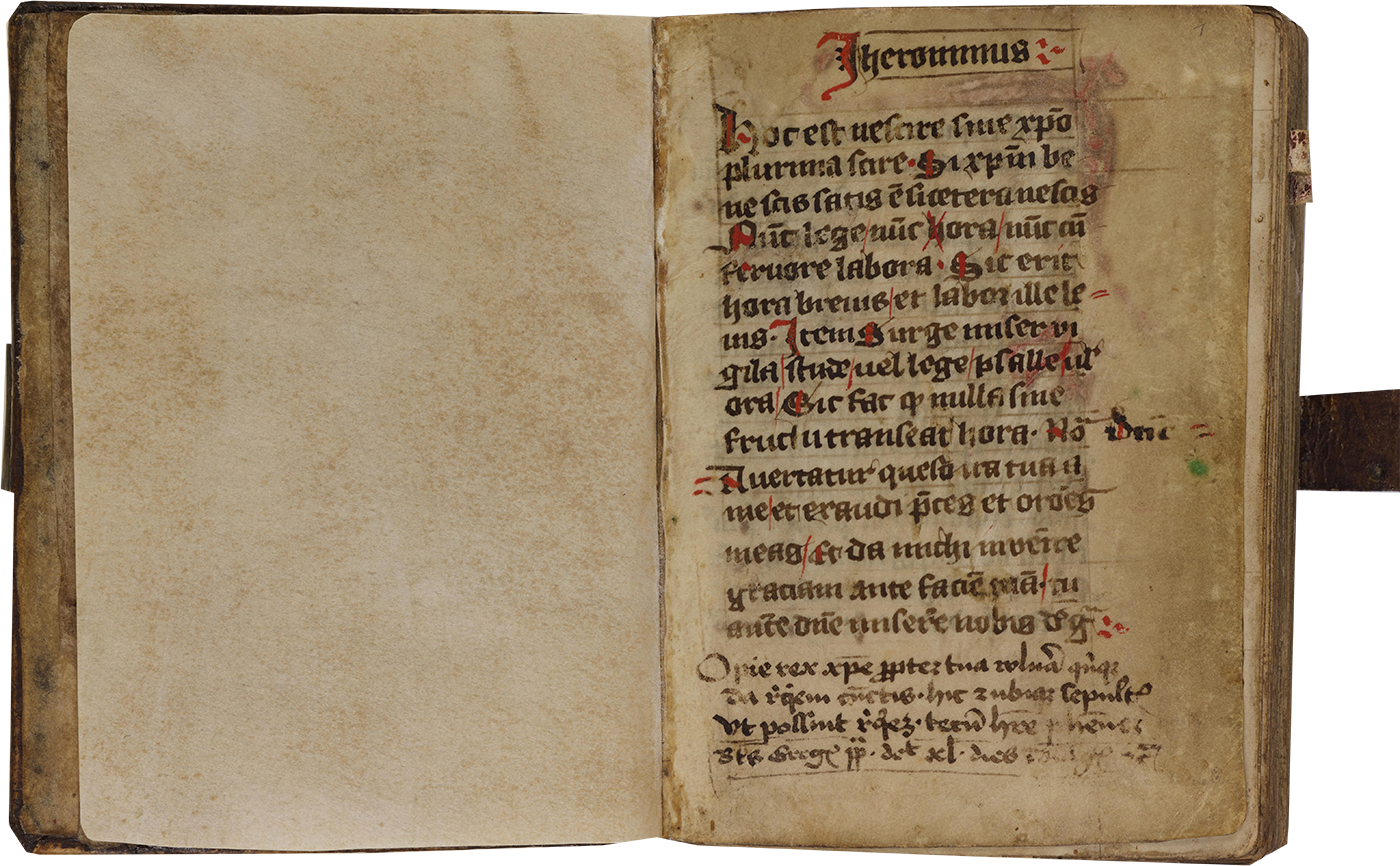 Jheronimus
Hoc est nescire sine xpō
plurima scire. Si xpm̄ be
ne scis satis ē si cetera nescis
Nūc lege nūc hora nūc cū
feruore labora. Sic erit
hora breuis et labor ille le
uis. Item Surge miser vi
gila stude uel lege psalle ul̓
ora Sic fac ꝙ nulla sine
fructu transeat hora. Nō dn̄e
Auertatur queso ira tua a
me et exaudi p̄ces et orōes
meas Et da michi inuen̄ire
graciam ante faciē tuā tu
autē dn̄e miser̄e nobis
O pie rex xp̄e ꝓpter tua wlnā̄a qn̄qꝫ
da cūctis hic ⁊ ubiqꝫ sepultꝭ
Vt possint tecū
xl dies